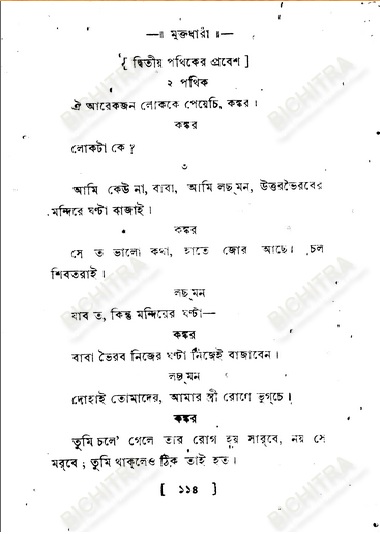 —॥ মুক্তধারা ॥—
[ দ্বিতীয় পথিকের প্রবেশ ]
২ পথিক
ঐ আরেকজন লোককে পেয়েচি, কঙ্কর ।
কঙ্কর
লোকটা কে ?
৩
আমি কেউ না, বাবা, আমি লছ্‌মন, উত্তরভৈরবের
মন্দিরে ঘণ্টা বাজাই ।
কঙ্কর
সে ত ভালো কথা, হাতে জোর আছে । চল
শিবতরাই ।
লছ্‌মন
যাব ত, কিন্তু মন্দিরের ঘণ্টা—
কঙ্কর
বাবা ভৈরব নিজের ঘণ্টা নিজেই বাজাবেন ।
লছ্‌মন
দোহাই তোমাদের, আমার স্ত্রী রোগে ভুগ্‌চে ।
কঙ্কর
তুমি চলে’ গেলে তার রোগ হয় সার্‌বে, নয় সে
মর্‌বে ; তুমি থাক্‌লেও ঠিক তাই হত ।
[ ১১৪ ]
BICHITRA
BICHITRA
BICHITRA
BICHITRA
BICHITRA
BICHITRA